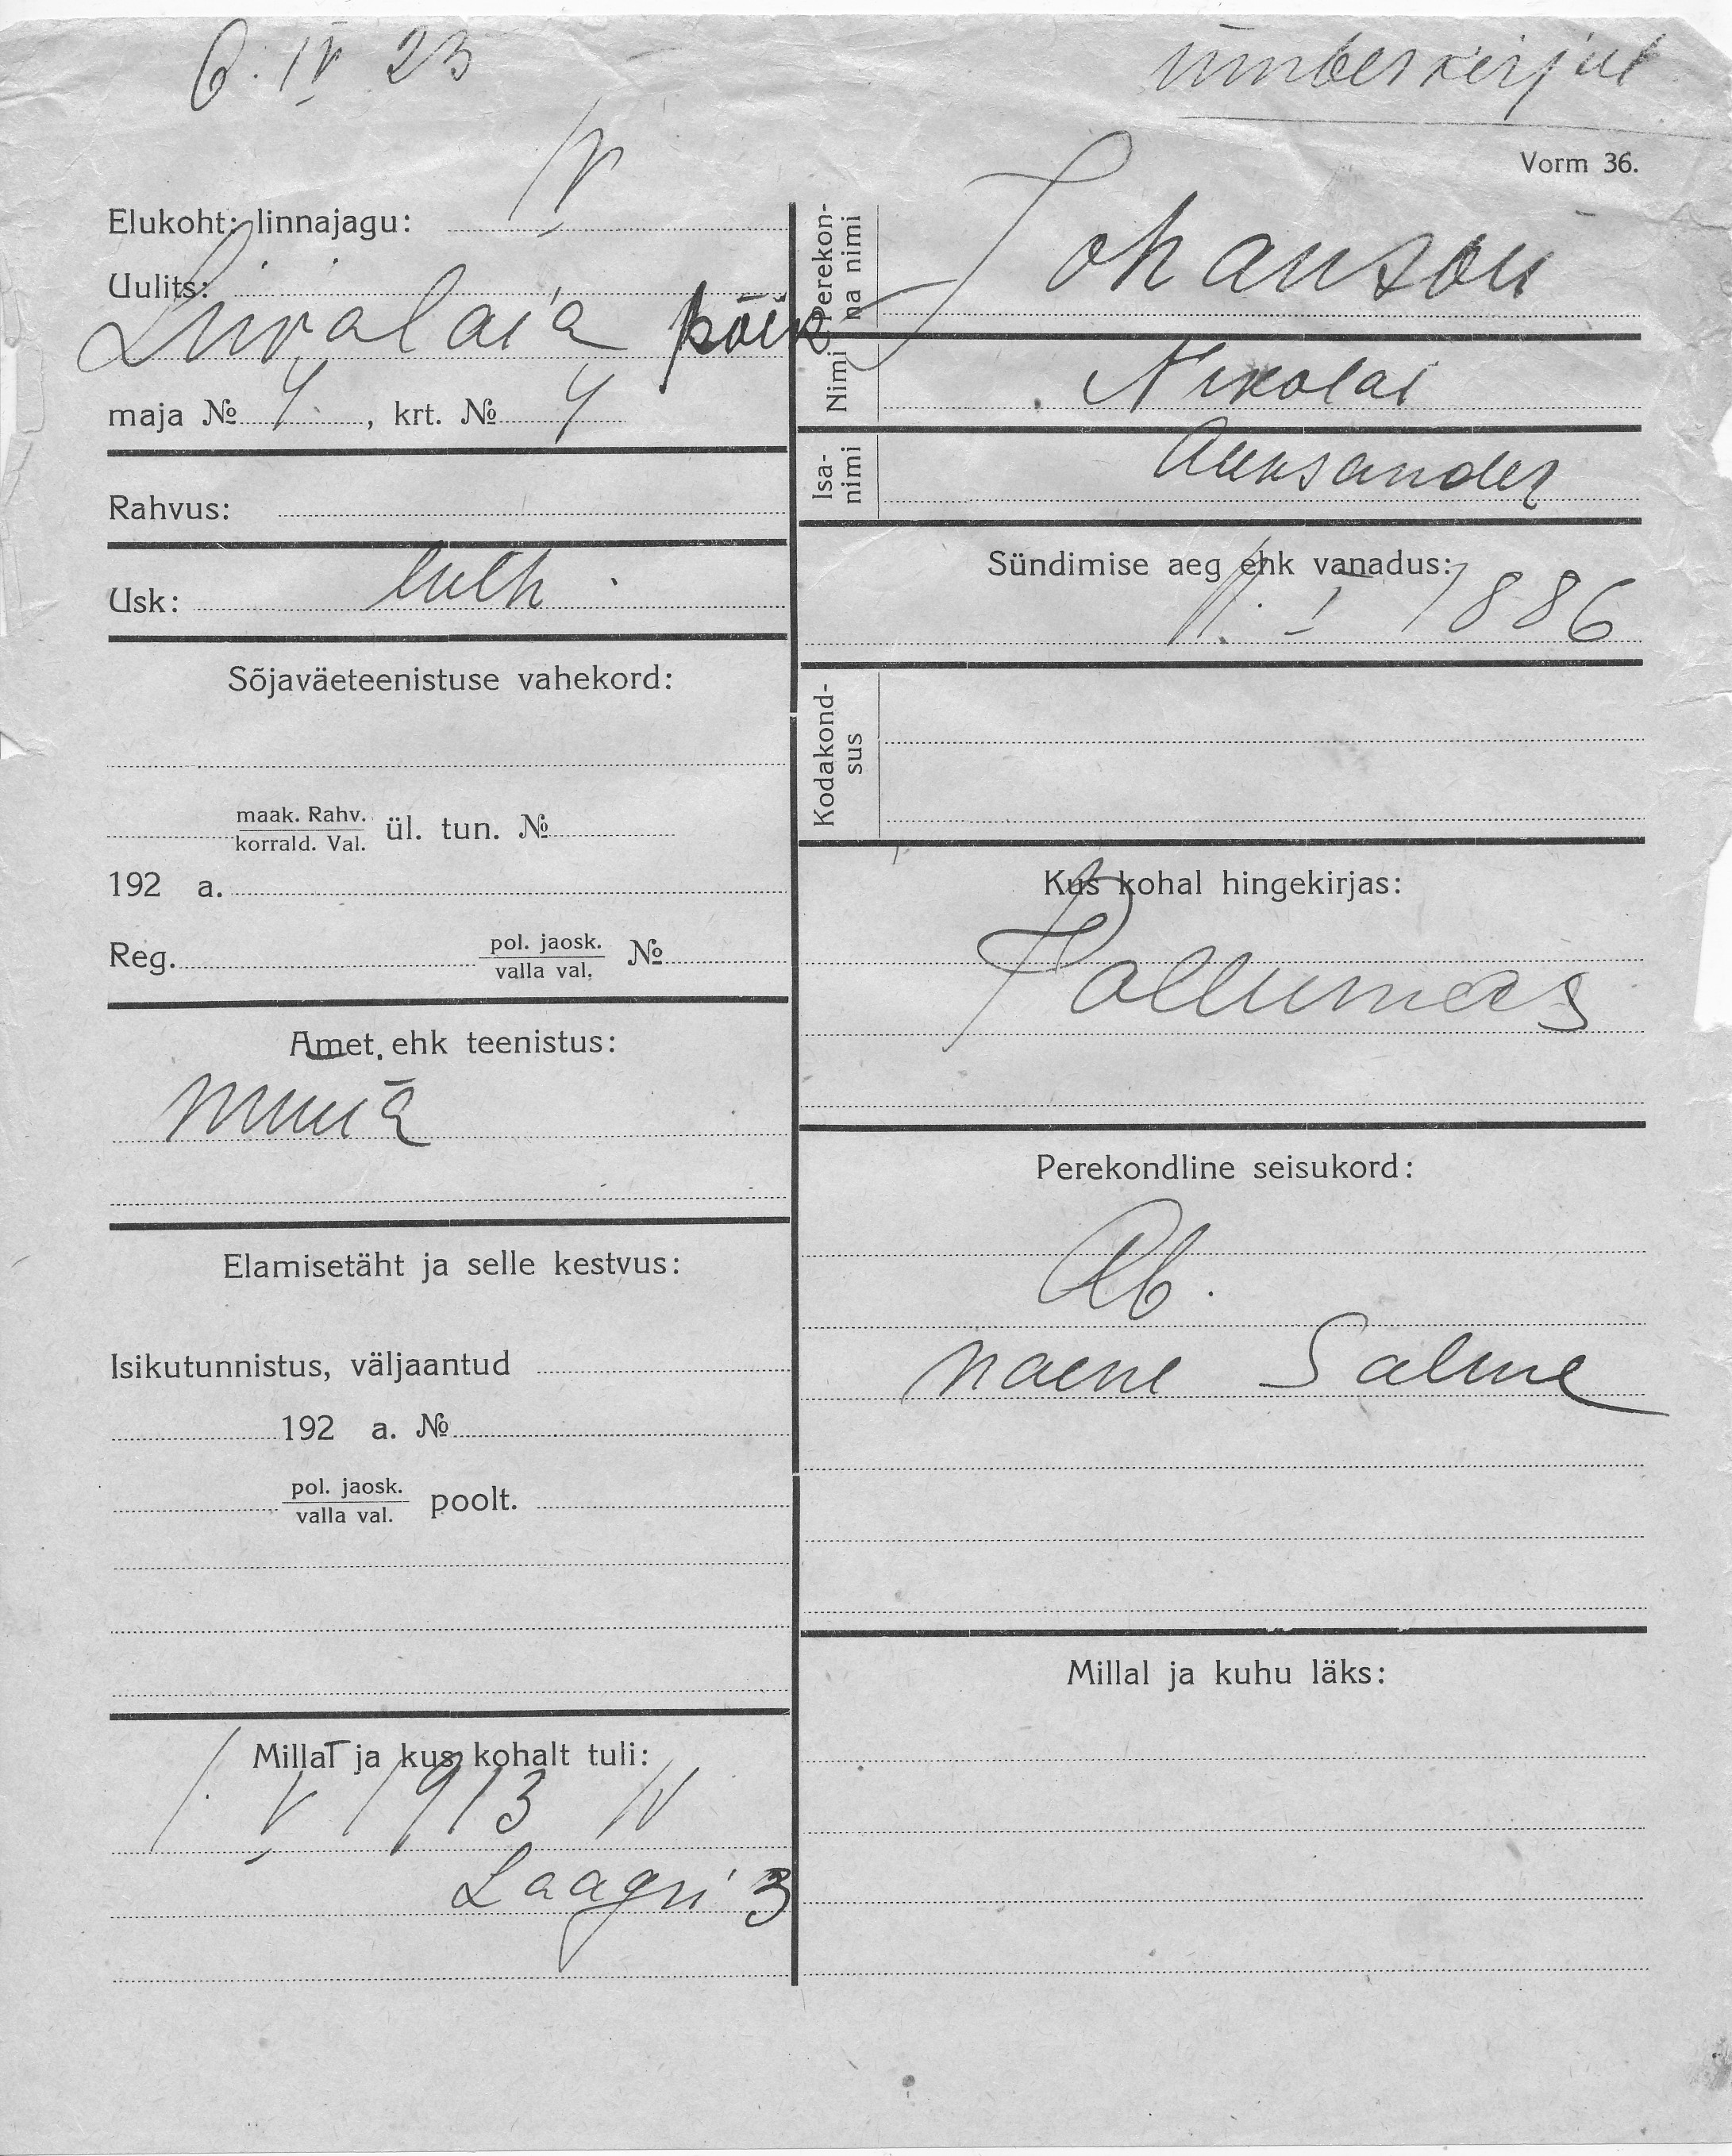 6. IV 23
ümberkirjut
Vorm 36.
Elukoht: linnajagu: IV
Uulits:
Liivalaia põik
maja № 4, krt. № 4
Rahvus:
Usk: luth.
Sõjaväeteenistuse vahekord:
maak. Rahv.
korrald. Val.
ül. tun. №
192 a.
Reg.
pol. jaosk.
valla val.
№
Amet, ehk teenistus:
Elamisetäht ja selle kestvus:
Isikutunnistus, väljaantud
192 a. №
pol. jaosk.
valla val.
poolt.
Millal ja kus kohalt tuli:
1. V 1913 IV
Laagri 3
Perekon-
na nimi
Johanson
Nimi
Nikolai
Isa-
nimi
Aleksander
Sündimise aeg ehk vanadus:
11. I 1886
Kodakond-
sus
Kus kohal hingekirjas:
Perekondline seisukord:
Ab.
naene Salme
Millal ja kuhu läks: